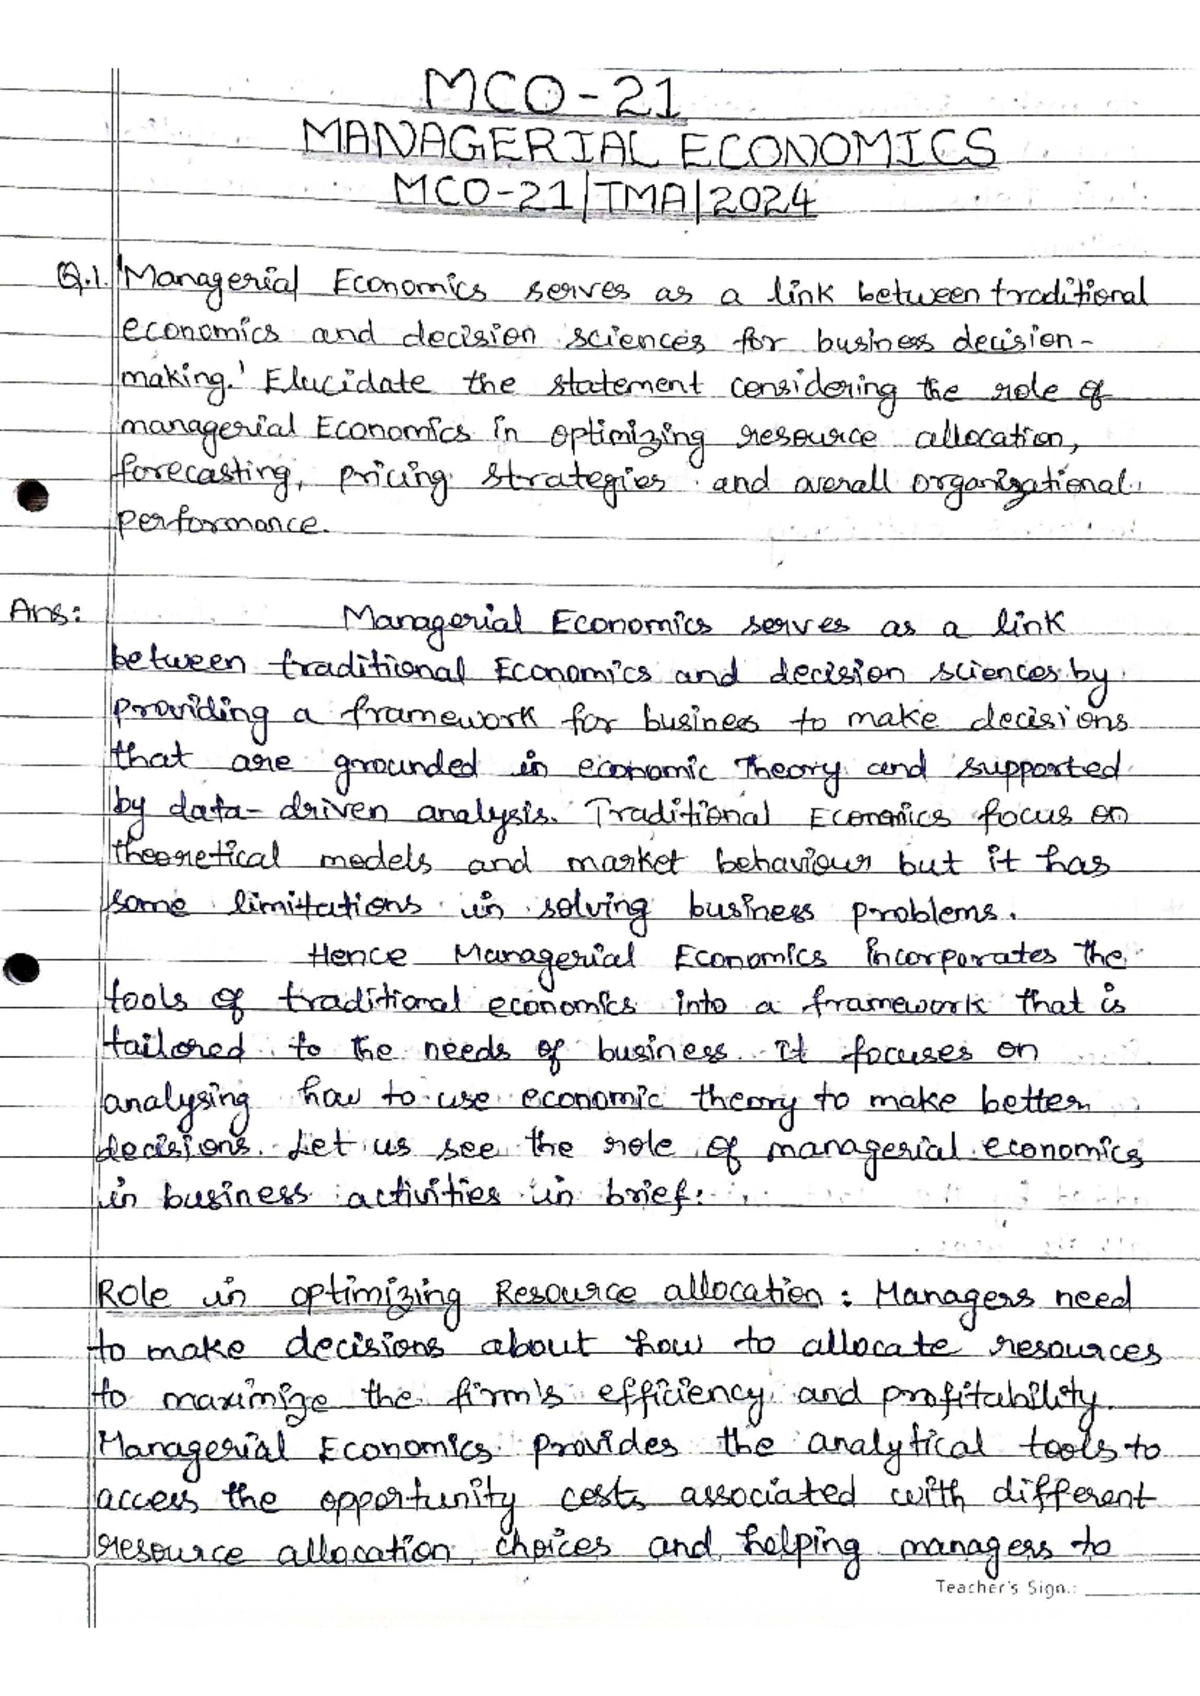 MCO-21
MANAGERIAL ECONOMICS
MCO-21/TMA/2024
Q.1. 'Managerial Economics serves as a link between traditional
economics and decision sciences for business decision-
making.' Elucidate the statement considering the role of
managerial Economics in optimizing resource allocation,
forecasting, pricing strategies and overall organizational
performance.
Ans: Managerial Economics serves as a link
between traditional Economics and decision sciences by
providing a framework for business to make decisions
that are grounded in economic Theory and supported
by data-driven analysis. Traditional Economics focus on
theoretical models and market behaviour but it has
some limitations in solving business problems.
Hence Managerial Economics incorporates the
tools of traditional economics into a framework that is
tailored to the needs of business. It focuses on
analysing how to use economic theory to make better
decisions. Let us see the role of managerial economics
in business activities in brief:
Role in optimizing Resource allocation : Managers need
to make decisions about how to allocate resources
to maximize the firm's efficiency and profitability.
Managerial Economics provides the analytical tools to
access the opportunity costs associated with different
resource allocation choices and helping managers to
Teacher's Sign.: